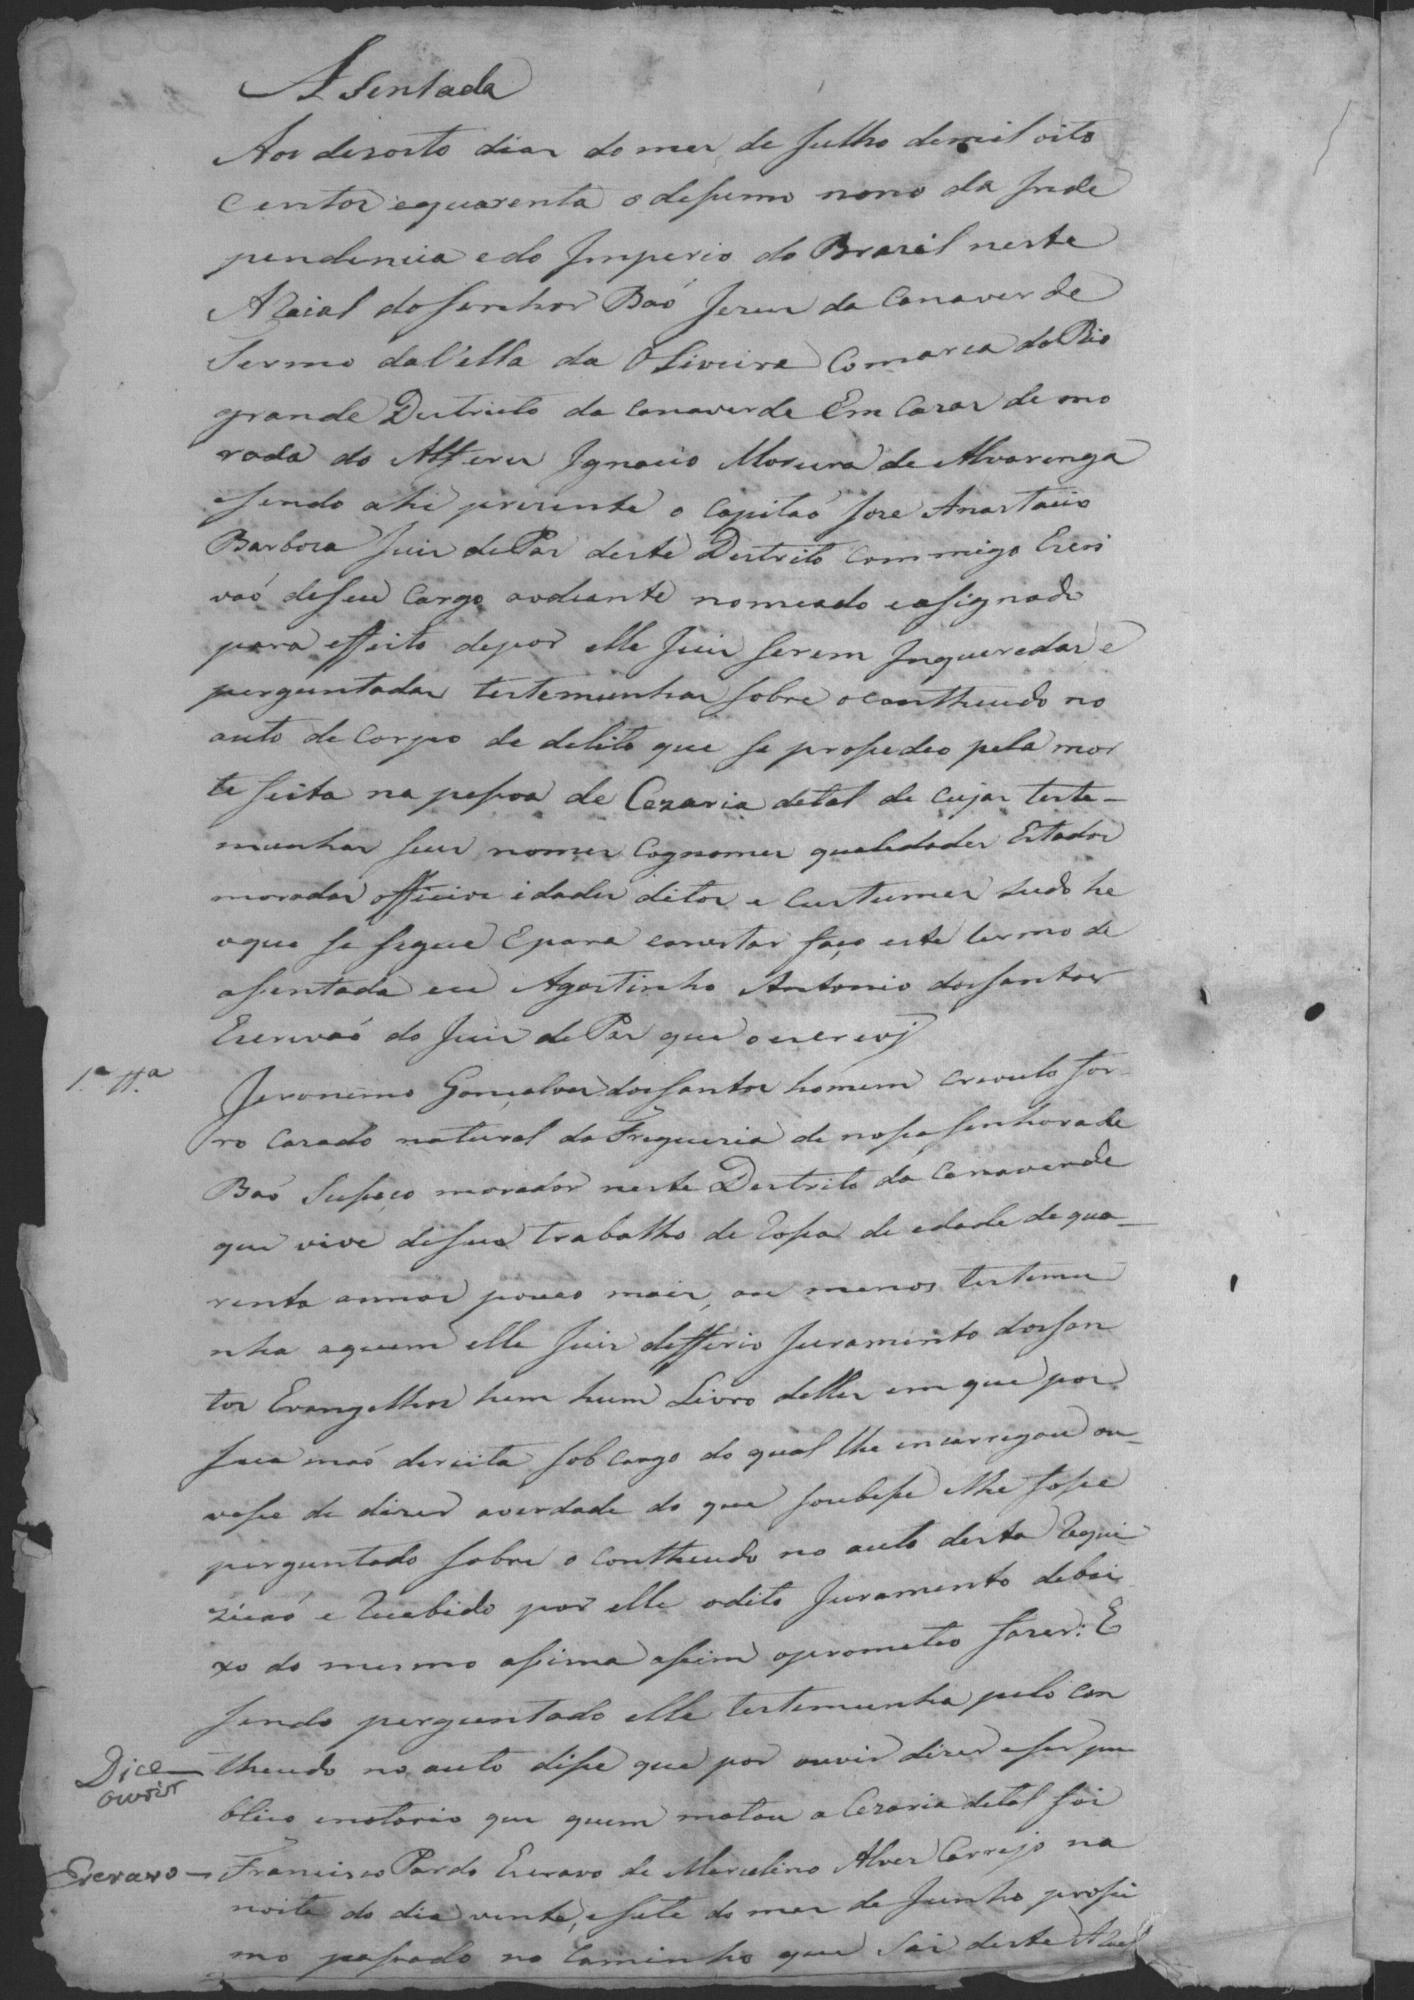 Asentada
Aos desoito dias do mes de Julho de mil oito
centos e quarenta o desimo nono da Inde
pendencia e do Imperio do Brazil neste
Araial do Senhor Bão Jezus da Canaverde
Termo da Vˢella da Oliveira Comarca do Rio
grande Destricto da Canaverde Em Cazas de mo
rada do Alferes Ignacio Moreira de Alvarenga
e sendo ahi prezente o Capitão Jose Anastacio
Barboza Juis de Pas deste Destrito commigo Escri
vão deseu Cargo aodiante nomeado e asignado
para effeito depor elle Juis serem Inqueredas e
perguntadas testemunhas sobre o contheudo no
auto de Corpo de delito que se prosedeo pela mor
te feita na pesoa de Cezaria detal de cujas teste-
munhas seus nomes Cognomes qualedades Estados
moradas officios idades ditos e Custumes tudo he
oque se segue E para constar faço este termo de
asentada eu Agostinho Antonio dos santos
Escrivão do Juis de Pas que o escrevj
1.ª tt.ª
Jeronimo Gonçalves dos santos homem creoulo for
ro cazado natural da Freguezia de nosa senhora de
Bão Suseço morador neste Destrito da Canaverde
que vive deseu trabalho de rosa de edade de qua-
renta annos pouco mais, ou menos testemu
nha aquem elle Juis defferio Juramento dos san
tos Evangelhos hem hum Livro delles em que pos
sua mão dereita sob cargo do qual lhe encarregou ou-
vese de dizer averdade do que soubese e lhe fose
perguntado sobre o contheudo no auto desta requi
zicão e recebido por elle o dito Juramento debai
xo do mesmo asima asim oprometeo fazer: E
sendo perguntado elle testemunha pelo con
Dice
ouvir
theudo no auto dise que por ouvir dizer e ser pu
blico enotorio que quem matou a Cezaria detal foi
Escravo
Francisco Pardo Escravo de Marcelino Alves Carrijo na
noite do dia vente, e sete do mes de Junho prosi
mo pasado no Caminho que sai deste Arael